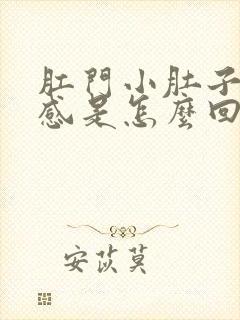 肛門小肚子
感是怎麼回
安苡莫